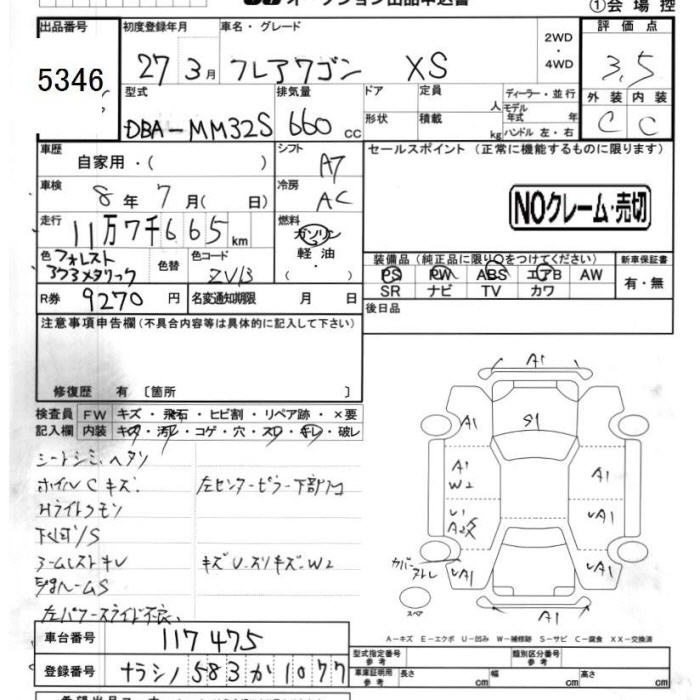 オークション出品申込書
①会場控
出品番号 初度登録年月 車名・グレード 2WD・4WD 評価点
5346 27 3月 フレアワゴン XS 3.5
型式 排気量 ドア 定員 人 ディーラー・並行 外装 内装
DBA-MM32S 660cc 形状 積載 kg モデル年式 年 ハンドル 左・右 C C
車歴 自家用・( ) シフト AT セールスポイント (正常に機能するものに限ります)
車検 8年7月( 日) 冷房 AC NOクレーム・売切
走行 11万7千665km 燃料 ガソリン 軽油 ( ・ )
色 フォレスト 色替 色コード ZVB 装備品 (純正品に限り○をつけてください) 新車保証書
PS PW ABS エアB AW 有・無
R券 9270円 名変通知期限 月 日 SR ナビ TV カワ
注意事項申告欄 (不具合内容等は具体的に記入して下さい) 後日品
修復歴 有 〔箇所 〕
検査員 FW キズ・飛石・ヒビ割・リペア跡・×要
記入欄 内装 キズ・汚レ・コゲ・穴・スレ・キレ・破レ
シートシミ、ヘタリ
ホイルCキズ 左センターピラー下部凹
Hライトクモン
下廻/S
アームレストキレ キズU・スリキズ・W2
S
左パワースライド不良、
A1
A1 S1 A1
A1 W2 A1
U1 UA1
カバー UA1 UA1
スペア
A1
A-キズ E-エクボ U-凹み W-補修跡 S-サビ C-腐食 XX-交換済
車台番号 117475
型式指定番号 参考 類別区分番号 参考
登録番号 ナラシノ 583 か 1077
車庫証明用 参考 長さ cm 幅 cm 高さ cm